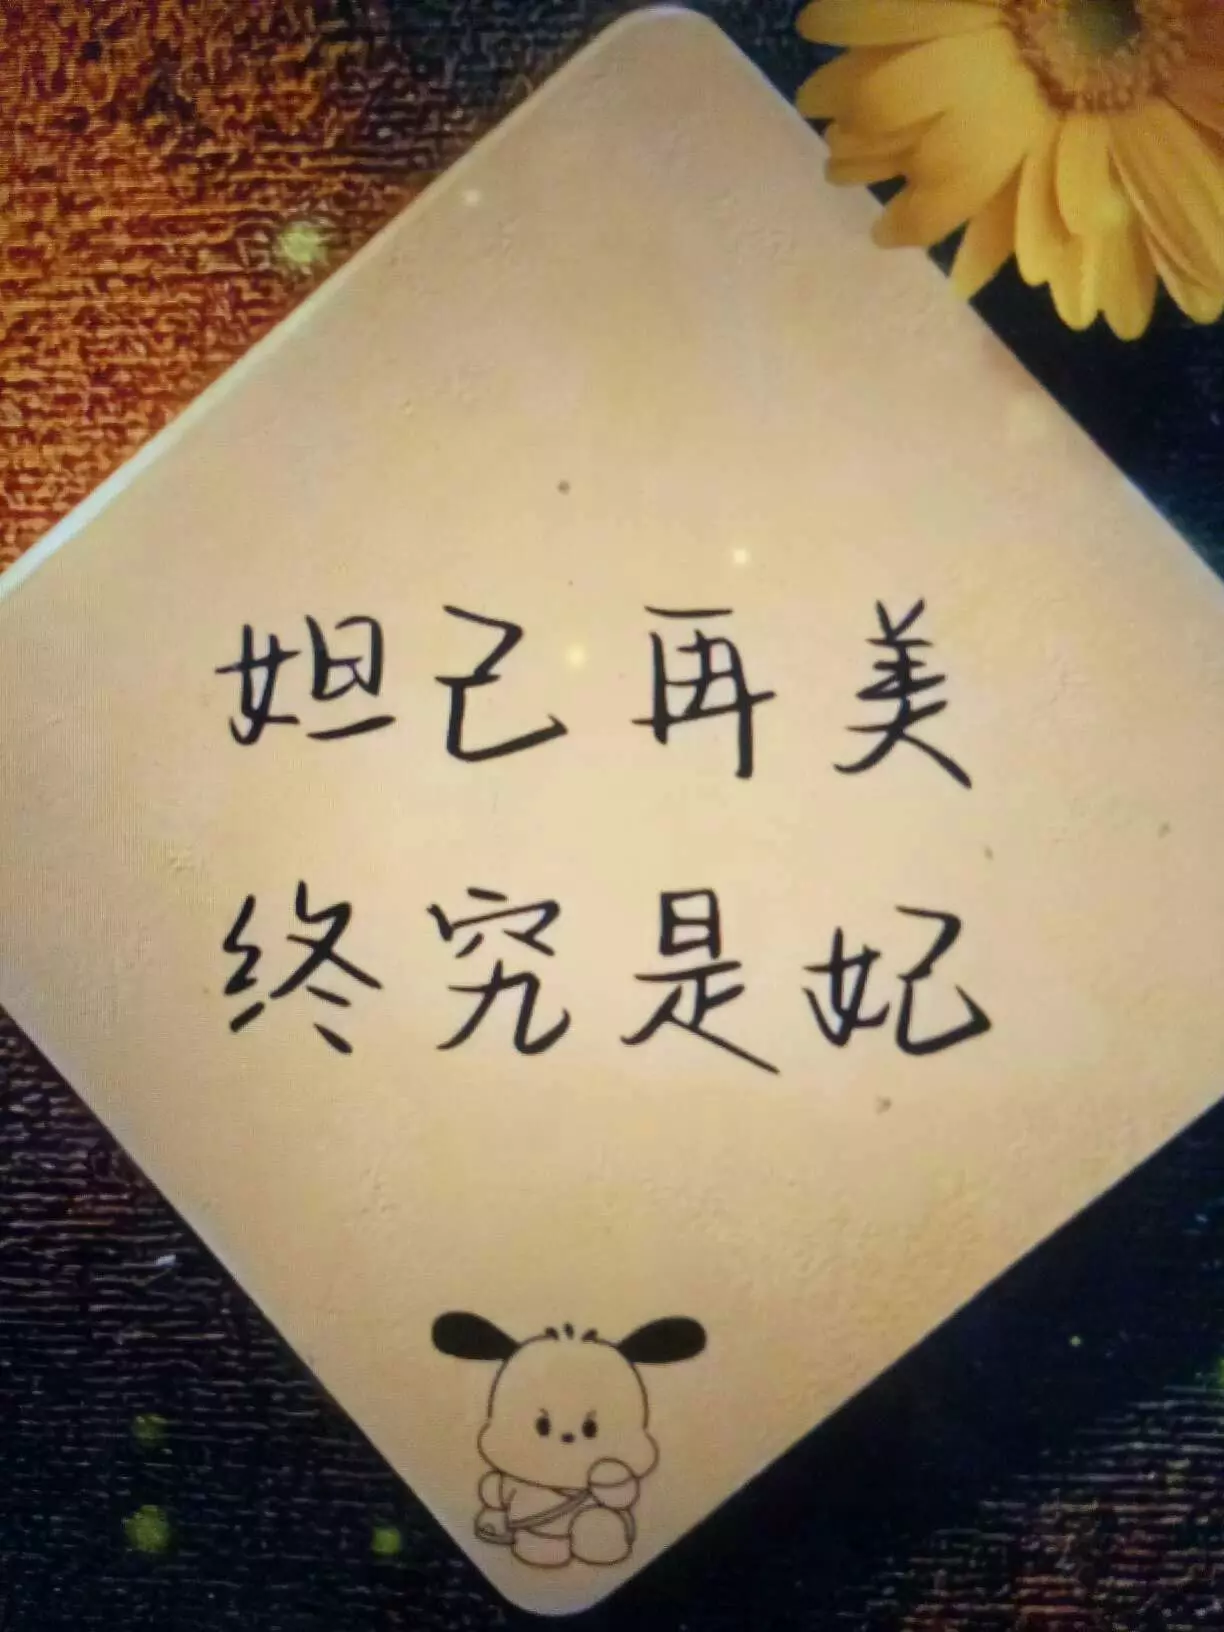 妲己再美
终究是妃